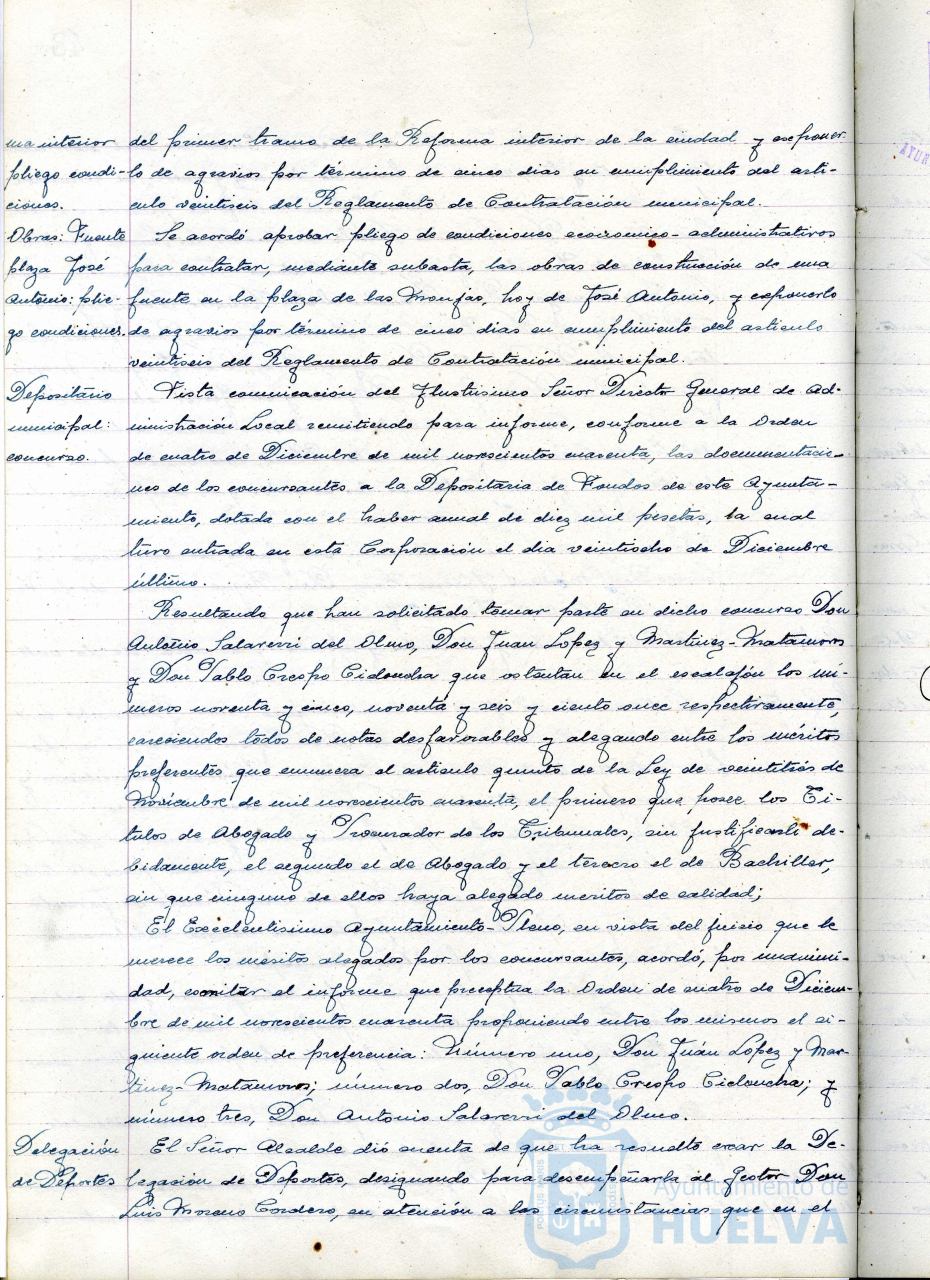 ma interior
pliego condi-
ciones.
del primer tramo de la Reforma interior de la ciudad y exponer
lo de agravios por término de cinco dias en cumplimiento del arti-
culo veintiseis del Reglamento de Contratación municipal.
Obras: Fuente
plaza José
Antonio: plie-
go condiciones.
Se acordó aprobar pliego de condiciones económico-administrativas
para contratar, mediante subasta, las obras de construcción de una
fuente en la plaza de las Monjas, hoy de José Antonio, y exponerlo
de agravios por término de cinco dias en cumplimiento del articulo
veintiseis del Reglamento de Contratación municipal.
Depositário
municipal:
concurso.
Vista comunicación del Ilustrisimo Señor Director General de Ad-
ministración Local remitiendo para informe, conforme a la Orden
de cuatro de Diciembre de mil novescientos cuarenta, las documentacio-
nes de los concursantes a la Depositaria de Fondos de este Ayunta-
miento, dotada con el haber anual de diez mil pesetas, la cual
tuvo entrada en esta Corporación el dia veintiocho de Diciembre
último.
Resultando que han solicitado tomar parte en dicho concurso Don
Antonio Salaverri del Olmo, Don Juan Lopez y Martinez-Matamoros
y Don Pablo Crespo Cidoncha que ostentan en el escalafón los nú-
meros noventa y cinco, noventa y seis y ciento once respectivamente,
careciendos todos de notas desfavorables y alegando entre los méritos
preferentes que enumera el articulo quinto de la Ley de veintitrés de
Noviembre de mil novescientos cuarenta, el primero que posee los Ti-
tulos de Abogado y Procurador de los Tribunales, sin justificarlo de-
bidamente, el segundo el de Abogado y el tercero el de Bachiller,
sin que ninguno de ellos haya alegado meritos de calidad;
El Excelentisimo Ayuntamiento-Pleno, en vista del juicio que le
merece los meritos alegados por los concursantes, acordó, por unanimi-
dad, emitir el informe que preceptua la Orden de cuatro de Diciem-
bre de mil novescientos cuarenta proponiendo entre los mismos el si-
guiente orden de preferencia: Número uno, Don Juán Lopez y Mar-
tinez-Matamoros; número dos, Don Pablo Crespo Cidoncha; y
número tres, Don Antonio Salaverri del Olmo.
Delegación
de Deportes
El Señor Alcalde dió cuenta de que ha resuelto crear la De-
legasión de Deportes, designando para desempeñarla al gestor Don
Luis Moreno Cordero, en atención a las circunstancias que en el
Ayuntamiento de
HUELVA